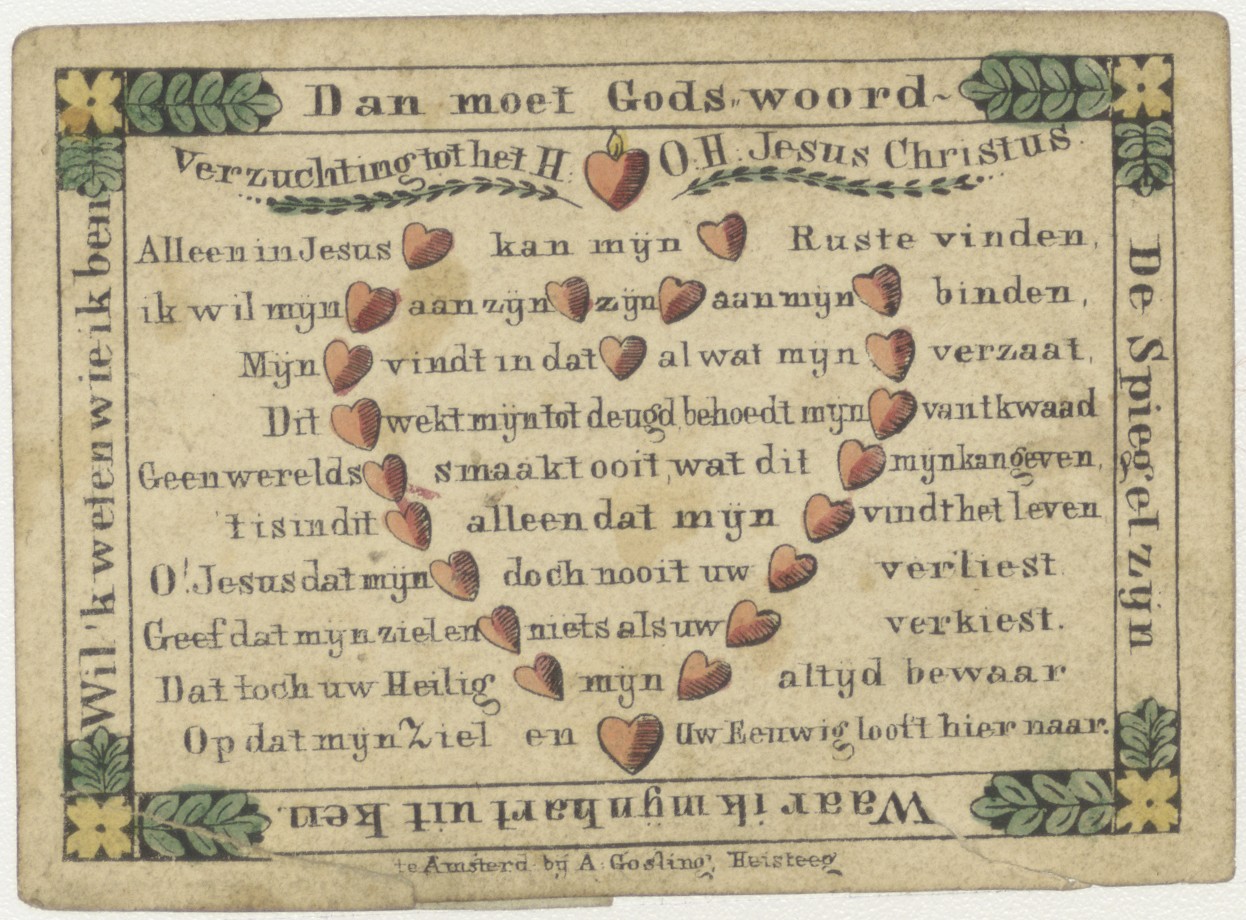 Dan moet Gods„woord~
Verzuchting tot het H. ♥ O.H. Jesus Christus.
Alleen in Jesus ♥ kan mijn ♥ Ruste vinden,
ik wil mijn ♥ aan zijn ♥ zijn ♥ aan mijn ♥ binden,
Mijn ♥ vindt in dat ♥ al wat mijn ♥ verzaat,
Dit ♥ wekt mijn tot deugd, behoedt mijn ♥ van tkwaad
Geen werelds ♥ smaakt ooit, wat dit ♥ mijn kan geven,
't is in dit ♥ alleen dat mijn ♥ vindt het leven
O! Jesus dat mijn ♥ doch nooit uw ♥ verliest
Geef dat mijn zielen ♥ niets als uw ♥ verkiest.
Dat toch uw Heilig ♥ mijn ♥ altyd bewaar
Op dat mijn Ziel en ♥ Uw Eeuwig looft hier naar.
De Spiegel zyn
Waar ik mijn hart uit ken.
Wil 'k weten wie ik ben,
te Amsterd. bij A. Gosling, Heisteeg